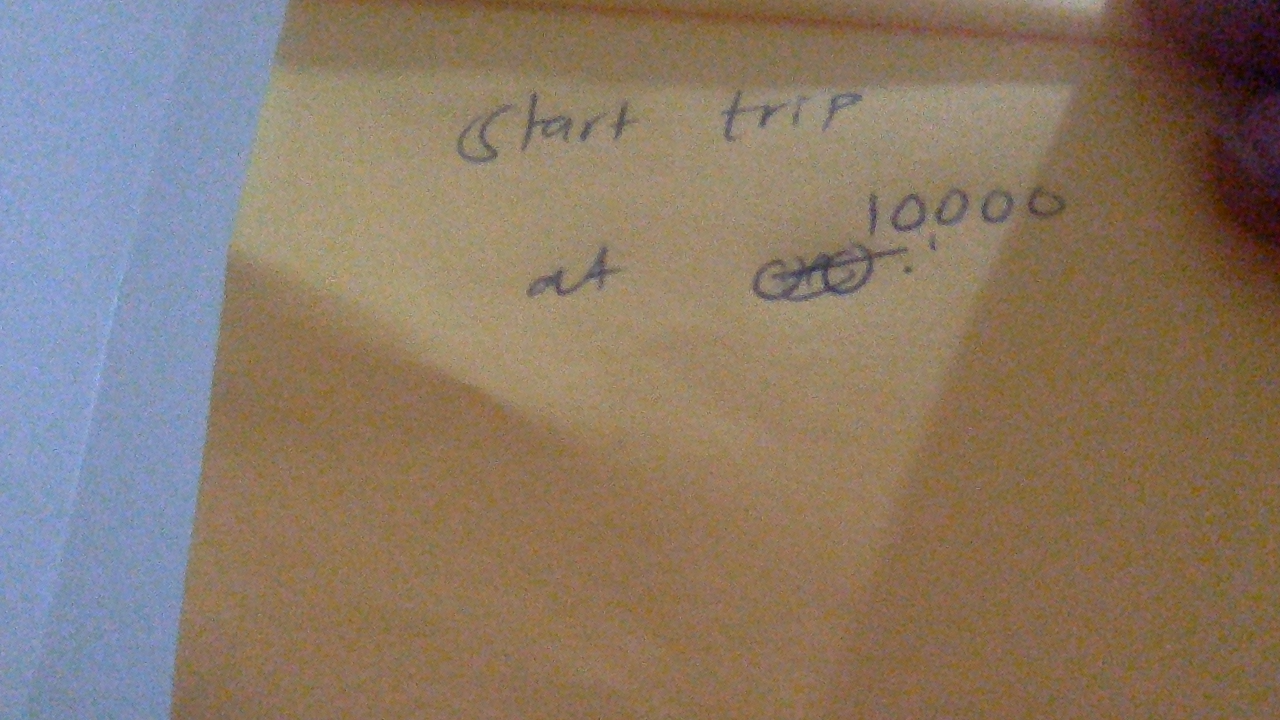 Start trip
at 10,000